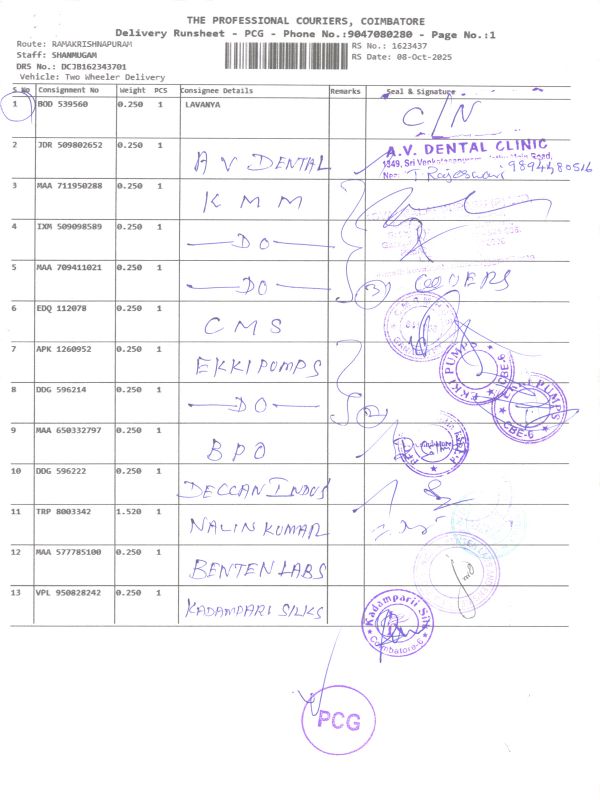 THE PROFESSIONAL COURIERS, COIMBATORE
Delivery Runsheet - PCG - Phone No.:9047080280 - Page No.:1
Route: RAMAKRISHNAPURAM
RS No.: 1623437
Staff: SHANMUGAM
RS Date: 08-Oct-2025
DRS No.: DCJB162343701
Vehicle: Two Wheeler Delivery
S No Consignment No Weight PCS Consignee Details Remarks Seal & Signature
1 BOD 539560 0.250 1 LAVANYA C/N
2 JDR 509802652 0.250 1 A V DENTAL A.V. DENTAL CLINIC
1349, Sri Road,
T. Rajeswari 9894480516
3 MAA 711950288 0.250 1 K M M
4 IXM 509098589 0.250 1 DO
5 MAA 709411021 0.250 1 DO 3 COVERS
6 EDQ 112078 0.250 1 C M S
7 APK 1260952 0.250 1 EKKI PUMPS EKKI PUMPS CBE-6
8 DDG 596214 0.250 1 DO 2 EKKI PUMPS CBE-6
9 MAA 650332797 0.250 1 B P O
10 DDG 596222 0.250 1 DECCAN INDUS
11 TRP 8003342 1.520 1 NALIN KUMAR
12 MAA 577785100 0.250 1 BENTEN LABS
13 VPL 950828242 0.250 1 KADAMPARI SILKS Kadamparii Silk Coimbatore-6
PCG